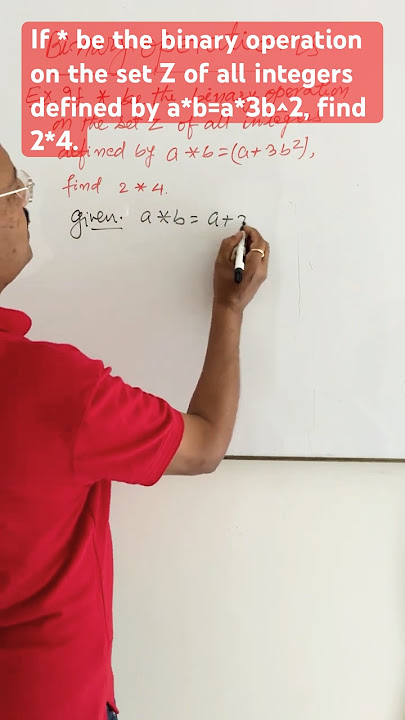 If * be the binary operation
on the set Z of all integers
defined by a*b=a*3b^2, find
2*4.
Binary operation
Ex. If * be the binary operation
on the set Z of all integers
defined by a * b = (a + 3b²),
find 2 * 4.
given. a * b = a +